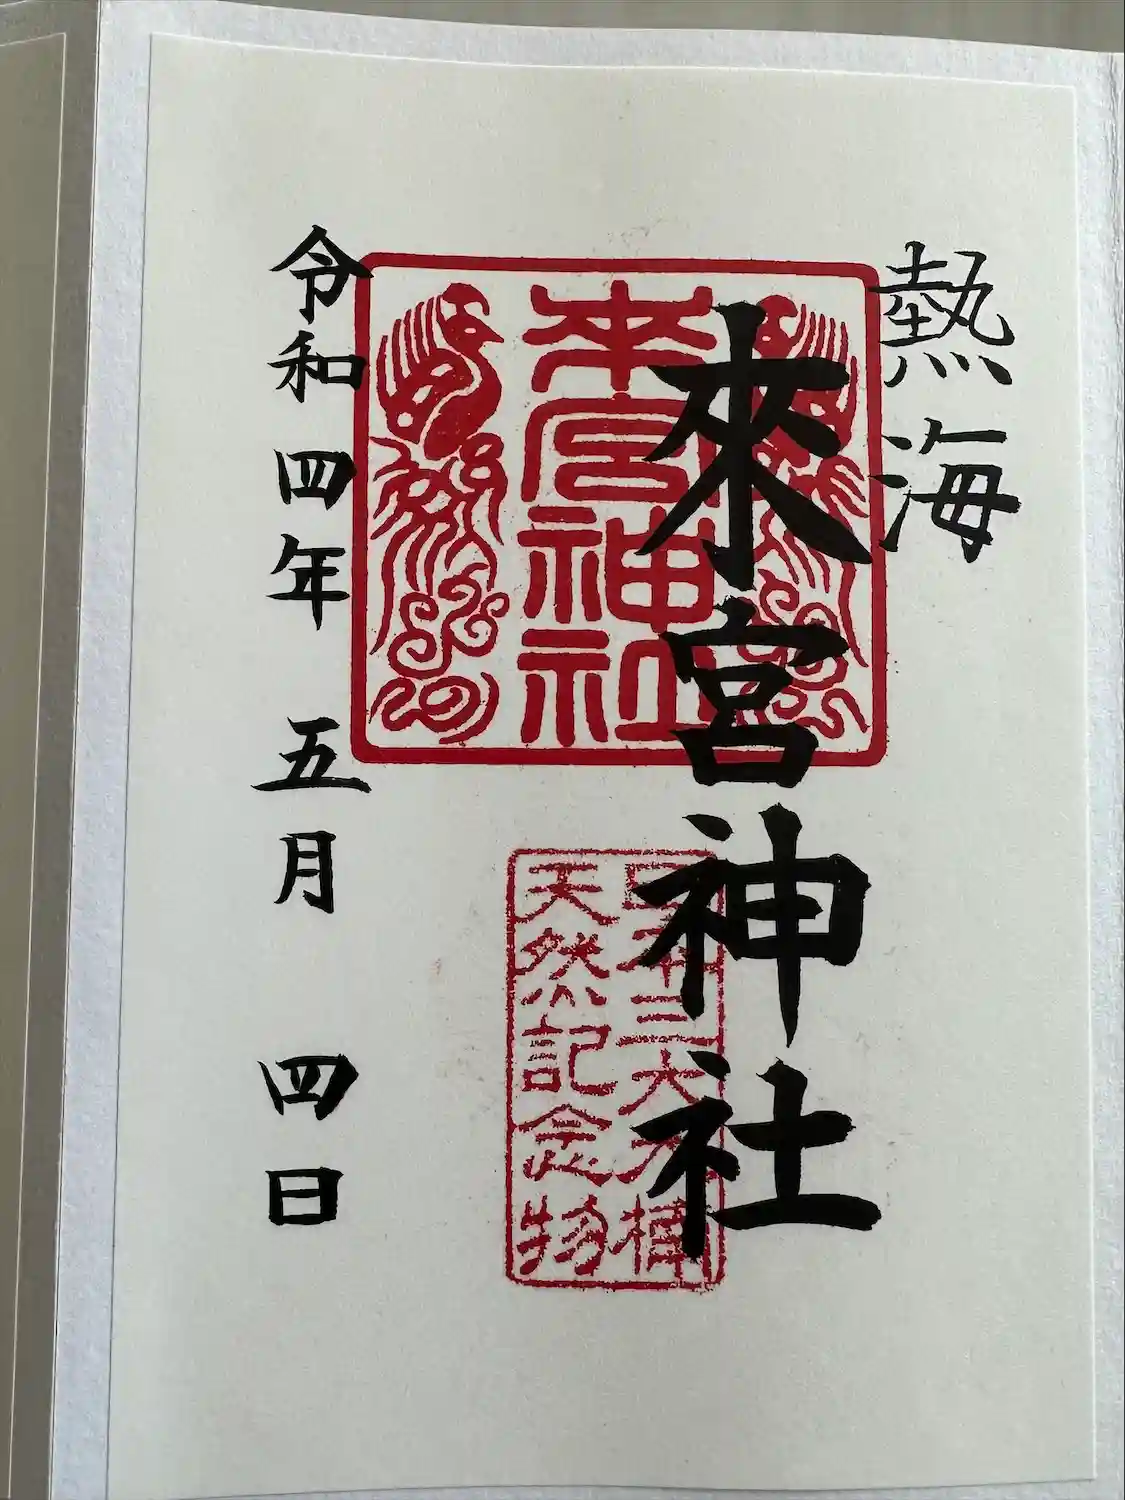 熱海
來宮神社
来宮神社
日本三大大楠
天然記念物
令和四年 五月 四日